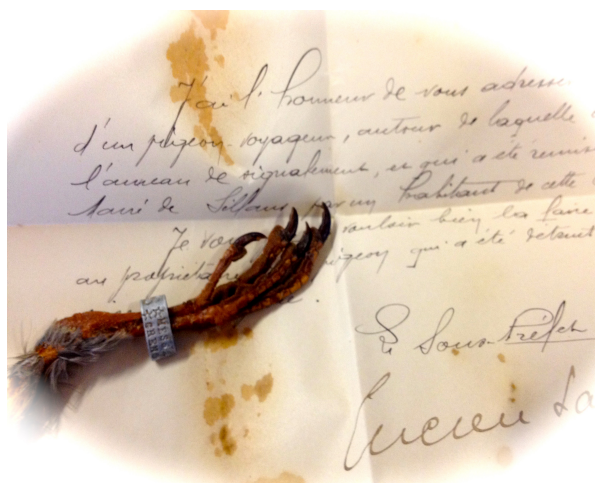 J'ai l'honneur de vous adresse
d'un pigeon-voyageur, autour de laquelle
l'anneau de signalement, et qui a été remis
de Sillans par un habitant de cette
Je vou vouloir bien la faire
au propriétaire pigeon qui a été détruit
Le Sous-Préfet
Lucien La